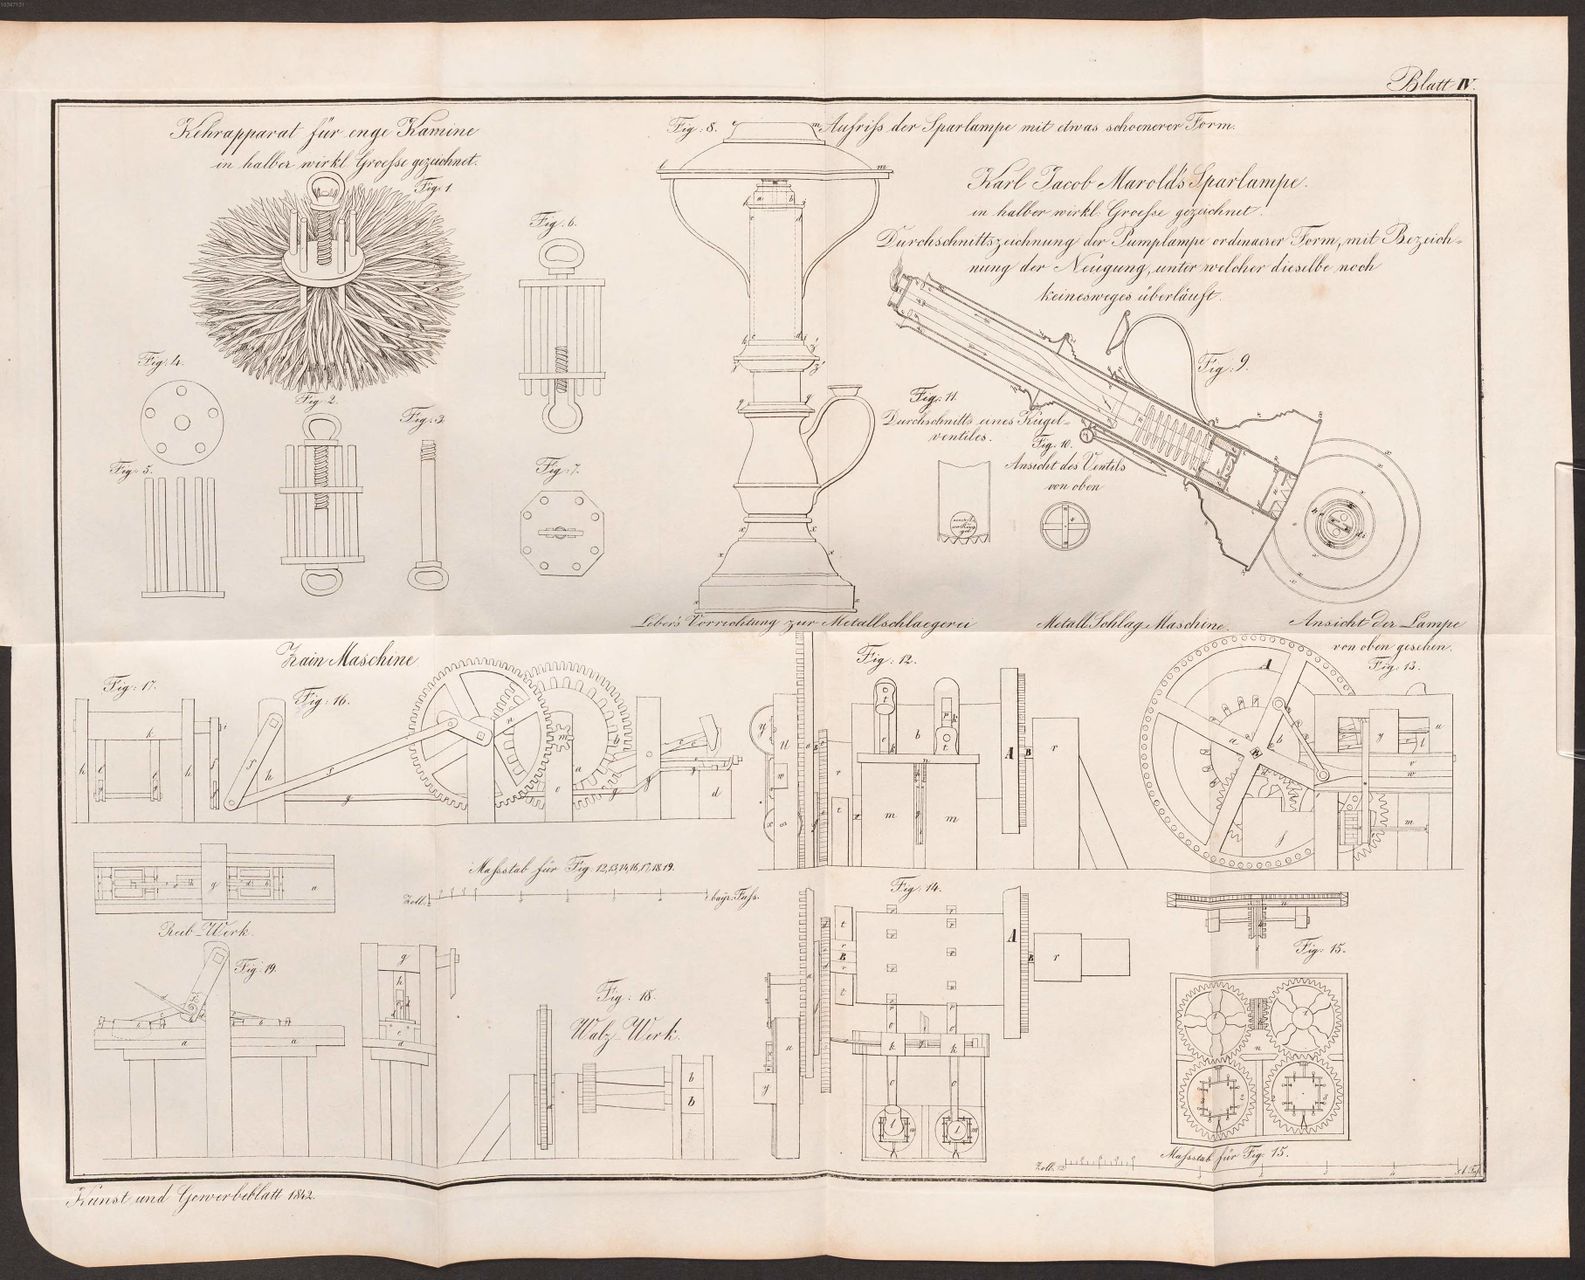 10347131
Blatt IV.
Kehrapparat für enge Kamine
in halber wirkl. Groesse gezeichnet.
Fig. 1
Fig. 2.
Fig. 3
Fig. 4.
Fig. 5.
Fig. 6.
Fig. 7.
Fig. 8.
Aufriss der Sparlampe mit etwas schoenerer Form.
Karl Jacob Marold's Sparlampe.
in halber wirkl. Groesse gezeichnet.
Durchschnittszeichnung der Pumplampe ordinaerer Form, mit Bezeich-
nung der Neigung, unter welcher dieselbe noch
keinesweges überläuft.
Fig. 9.
Fig. 11.
Durchschnitts eines Kugel-
ventiles.
Fig. 10.
Ansicht des Ventils
von oben
Leber's Vorrichtung zur Metallschlaegerei
Metall Schlag Maschine.
Ansicht der Lampe
von oben gesehen.
Zain Maschine
Fig. 17.
Fig. 16.
Fig. 12.
Fig. 13.
Massstab für Fig. 12,13,14,16,17,18,19.
Zoll.
bayr. Fuss.
Reib-Werk.
Fig. 19.
Fig. 18.
Walz-Werk.
Fig. 14.
Fig. 15.
Massstab für Fig. 15.
Zoll.
Kunst und Gewerbeblatt 1842.